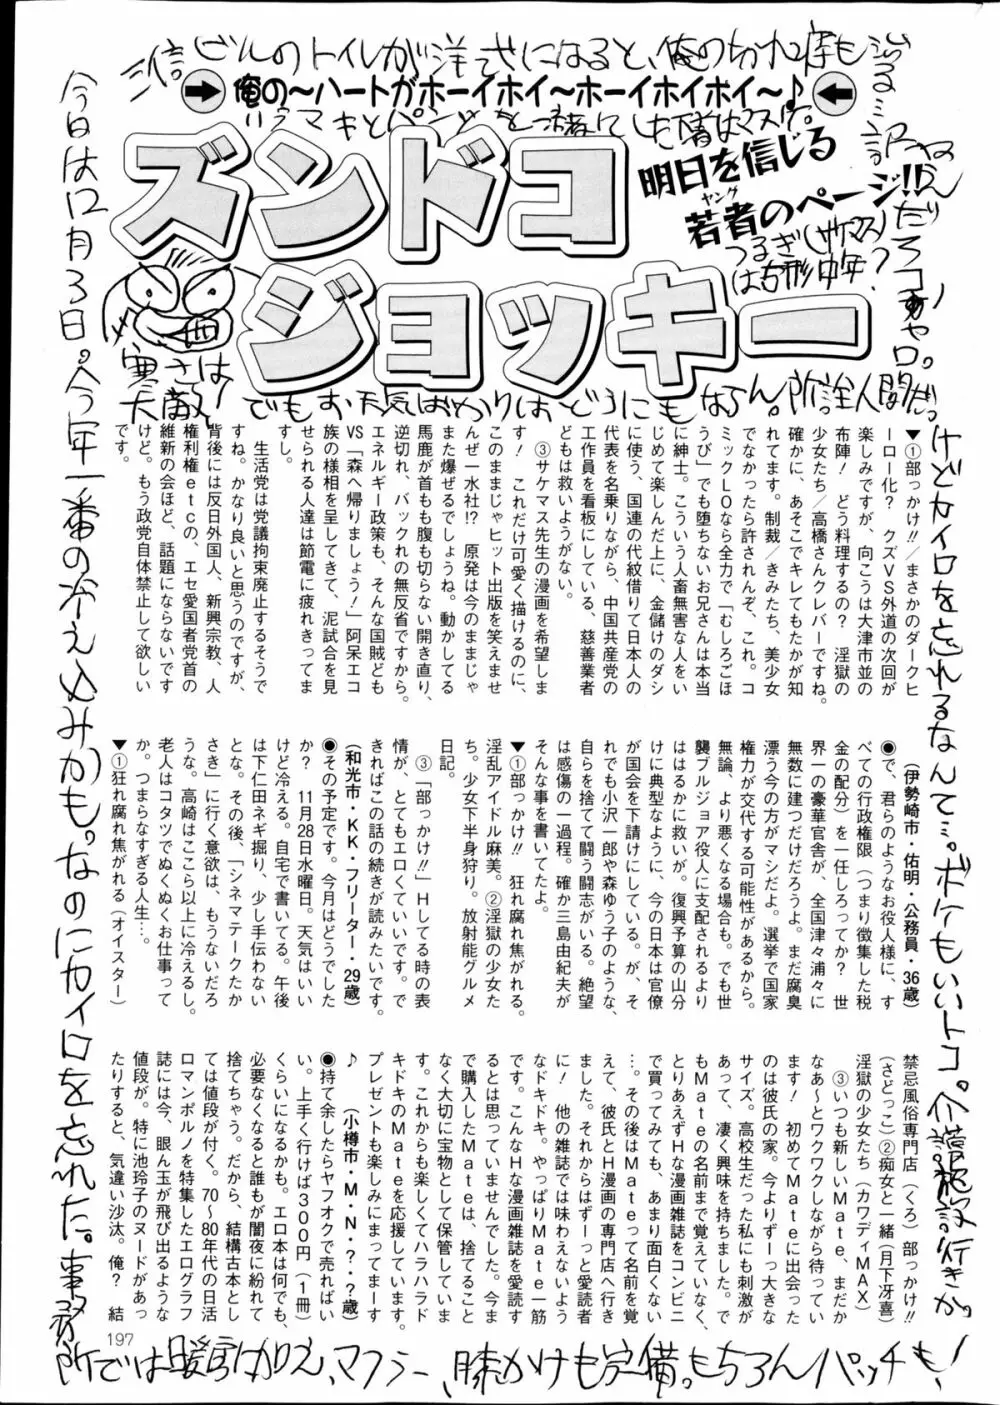 三信ビルのトイレが洋式になると、俺の切れ痔も
俺の〜ハートがホーイホイ〜ホーイホイホイ〜♪
ズンドコ
ジョッキー
明日を信じる
若者のページ!!
ヤング
つるぎ(サケマス)
は古形中年？
今日は12月3日。今年一番の冷え込みかも。なのにカイロを忘れた。事務
所では暖房に加え、マフラー、膝かけも完備。もちろんパッチも！
寒さは
天敵！
でもお天気ばかりはどうにもならん。所詮人間だ。
けどカイロを忘れるなんて…。ボケもいいトコ。介護施設行きか。
▼①部っかけ!!／まさかのダークヒ
ーロー化？　クズVS外道の次回が
楽しみですが、向こうは大津市並の
布陣！　どう料理するの？　淫獄の
少女たち／高橋さんクレバーですね。
確かに、あそこでキレてもたかが知
れてます。制裁／きみたち、美少女
でなかったら許されんぞ、これ。コ
ミックLOなら全力で「むしろごほ
うび」でも堕ちないお兄さんは本当
に紳士。こういう人畜無害な人をい
じめて楽しんだ上に、金儲けのダシ
に使う、国連の代紋借りて日本人の
代表を名乗りながら、中国共産党の
工作員を看板にしている、慈善業者
どもは救いようがない。
③サケマス先生の漫画を希望しま
す！　これだけ可愛く描けるのに、
このままじゃヒット出版を笑えませ
んぜ一水社!?　原発は今のままじゃ
また爆ぜるでしょうね。動かしてる
馬鹿が首も腹も切らない開き直り、
逆切れ、バックれの無反省ですから。
エネルギー政策も、そんな国賊ども
VS「森へ帰りましょう！」阿呆エコ
族の様相を呈してきて、泥試合を見
せられる人達は節電に疲れきってま
すし。
生活党は党議拘束廃止するそうで
すね。かなり良いと思うのですが、
背後には反日外国人、新興宗教、人
権利権etcの、エセ愛国者党首の
維新の会ほど、話題にならないです
けど。もう政党自体禁止して欲しい
です。
(伊勢崎市・佑明・公務員・36歳)
●で、君らのようなお役人様に、す
べての行政権限（つまり徴集した税
金の配分）を一任しろってか？　世
界一の豪華官舎が、全国津々浦々に
無数に建つだけだろうよ。まだ腐臭
漂う今の方がマシだよ。選挙で国家
権力が交代する可能性があるから。
無論、より悪くなる場合も。でも世
襲ブルジョア役人に支配されるより
ははるかに救いが。復興予算の山分
けに典型なように、今の日本は官僚
が国会を下請けにしている。が、そ
れでも小沢一郎や森ゆう子のような、
自らを捨てて闘う闘志がいる。絶望
は感傷の一過程。確か三島由紀夫が
そんな事を書いてたよ。
▼①部っかけ!!　狂れ腐れ焦がれる。
淫乱アイドル麻美。②淫獄の少女た
ち。少女下半身狩り。放射能グルメ
日記。
③「部っかけ!!」Hしてる時の表
情が、とてもエロくていいです。で
きればこの話の続きが読みたいです。
(和光市・KK・フリーター・29歳)
●その予定です。今月はどうでした
か？　11月28日水曜日。天気はいい
けど冷える。自宅で書いてる。午後
は下仁田ネギ掘り、少し手伝わない
とな。その後、「シネマテークたか
さき」に行く意欲は、もうないだろ
うな。高崎はここら以上に冷えるし。
老人はコタツでぬくぬくお仕事って
か。つまらなすぎる人生…。
▼①狂れ腐れ焦がれる（オイスター）
禁忌風俗専門店（くろ）部っかけ!!
（さどっこ）②痴女と一緒（月下冴喜）
淫獄の少女たち（カワディMAX）
③いつも新しいMate、まだか
なあ〜とワクワクしながら待ってい
ます！　初めてMateに出会った
のは彼氏の家。今よりずーっ大きな
サイズ。高校生だった私にも刺激が
あって、凄く興味を持ちました。で
もMateの名前まで覚えていなく、
とりあえずHな漫画雑誌をコンビニ
で買ってみても、あまり面白くない
…。その後はMateって名前を覚
えて、彼氏とH漫画の専門店へ行き
ました。それからはずーっと愛読者
に！　他の雑誌では味わえないよう
なドキドキ。やっぱりMate一筋
です。こんなHな漫画雑誌を愛読す
るとは思っていませんでした。今ま
で購入したMateは、捨てること
なく大切に宝物として保管していま
す。これからも楽しくてハラハラド
キドキのMateを応援しています。
プレゼントも楽しみにまってまーす
♪　(小樽市・M・N・？・？歳)
●持て余したらヤフオクで売ればい
い。上手く行けば300円（1冊）
くらいになるかも。エロ本は何でも、
必要なくなると誰もが闇夜に紛れて
捨てちゃう。だから、結構古本とし
ては値段が付く。70〜80年代の日活
ロマンポルノを特集したエログラフ
誌には今、眼ん玉が飛び出るような
値段が。特に池玲子のヌードがあっ
たりすると、気違い沙汰。俺？　結
197